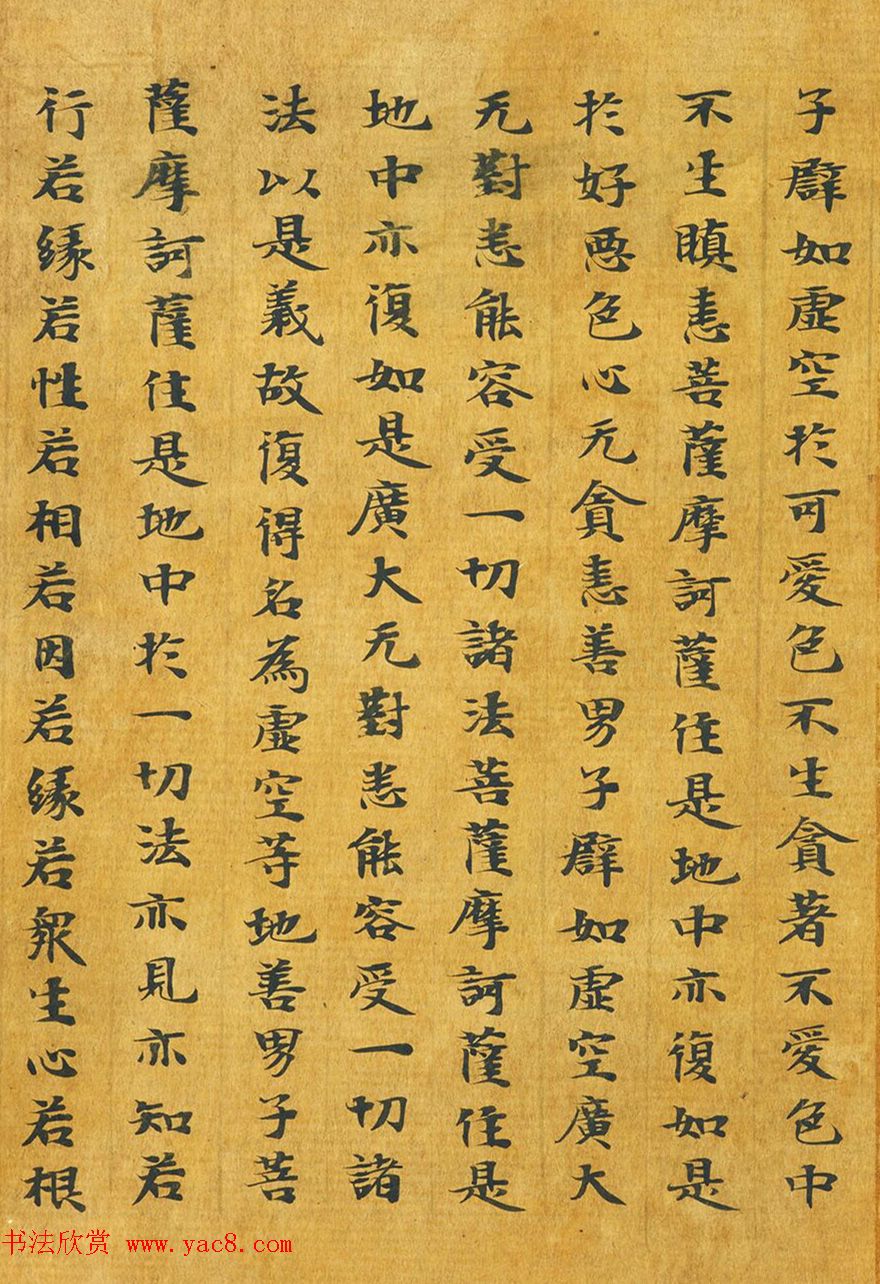 子礔如虛空於可愛色不生貪著不愛色中
不生瞋恚菩薩摩訶薩住是地中亦復如是
於好惡色心无貪恚善男子礔如虛空廣大
无對悉能容受一切諸法菩薩摩訶薩住是
地中亦復如是廣大无對悉能容受一切諸
法以是義故復得名為虛空等地善男子菩
薩摩訶薩住是地中於一切法亦見亦知若
行若緣若性若相若因若緣若衆生心若根
书法欣赏 www.yac8.com